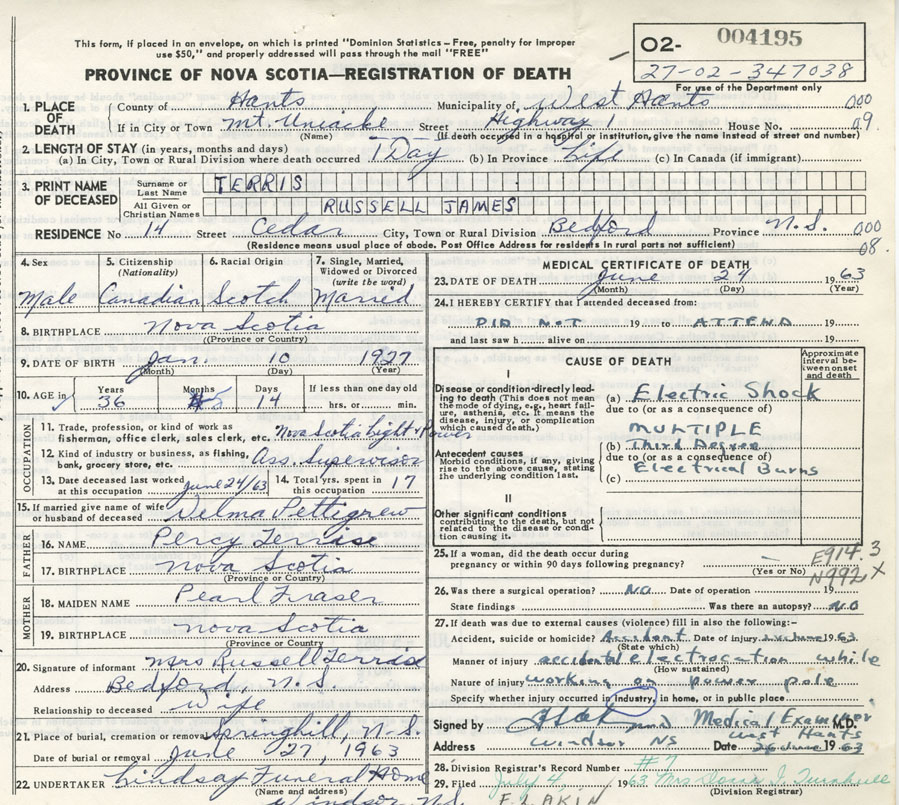 This form, if placed in an envelope, on which is printed "Dominion Statistics – Free, penalty for improper
use $50," and properly addressed will pass through the mail "FREE"
O2- 004195
27-02-347038
For use of the Department only
PROVINCE OF NOVA SCOTIA—REGISTRATION OF DEATH
1. PLACE OF DEATH County of Hants Municipality of West Hants 000
If in City or Town Mt. Uniacke Street Highway 1 House No. 09
(Name) (If death occurred in a hospital or institution, give the name instead of street and number)
2. LENGTH OF STAY (in years, months and days)
(a) In City, Town or Rural Division where death occurred 1 Day (b) In Province Life (c) In Canada (if immigrant)
3. PRINT NAME OF DECEASED Surname or Last Name TERRIS
All Given or Christian Names RUSSELL JAMES
RESIDENCE No 14 Street Cedar City, Town or Rural Division Bedford Province N.S. 000
08.
(Residence means usual place of abode. Post Office Address for residents in rural parts not sufficient)
4. Sex Male
5. Citizenship (Nationality) Canadian
6. Racial Origin Scotch
7. Single, Married, Widowed or Divorced (write the word) Married
8. BIRTHPLACE Nova Scotia
(Province or Country)
9. DATE OF BIRTH Jan. 10 1927
(Month) (Day) (Year)
10. AGE in Years 36 Months 5 Days 14 If less than one day old
hrs. or min.
OCCUPATION
11. Trade, profession, or kind of work as
fisherman, office clerk, sales clerk, etc. Nova Scotia Light & Power
12. Kind of industry or business, as fishing,
bank, grocery store, etc. Ass. Supervisor
13. Date deceased last worked at this occupation June 24/63
14. Total yrs. spent in this occupation 17
15. If married give name of wife
or husband of deceased Velma Pettigrew
FATHER
16. NAME Percy Terriss
17. BIRTHPLACE Nova Scotia
(Province or Country)
MOTHER
18. MAIDEN NAME Pearl Fraser
19. BIRTHPLACE Nova Scotia
(Province or Country)
20. Signature of informant Mrs Russell Terris
Address Bedford, N.S.
Relationship to deceased Wife
21. Place of burial, cremation or removal Springhill, N.S.
Date of burial or removal June 27, 1963
22. UNDERTAKER Lindsay Funeral Home
(Name and address)
Windsor, N.S.
MEDICAL CERTIFICATE OF DEATH
23. DATE OF DEATH June 24 1963
(Month) (Day) (Year)
24. I HEREBY CERTIFY that I attended deceased from:
DID NOT 19 to ATTEND 19
and last saw h alive on 19
CAUSE OF DEATH
Approximate interval between onset and death
I
Disease or condition directly leading to death (This does not mean the mode of dying, e.g., heart failure, asthenia, etc. It means the disease, injury, or complication which caused death.)
(a) Electric Shock
due to (or as a consequence of)
MULTIPLE
Antecedent causes
Morbid conditions, if any, giving rise to the above cause, stating the underlying condition last.
(b) Third Degree
due to (or as a consequence of)
Electrical Burns
(c)
II
Other significant conditions
contributing to the death, but not related to the disease or condition causing it.
25. If a woman, did the death occur during
pregnancy or within 90 days following pregnancy? —
(Yes or No)
E914.3
N992X
26. Was there a surgical operation? NO Date of operation 19
State findings Was there an autopsy? NO
27. If death was due to external causes (violence) fill in also the following:–
Accident, suicide or homicide? Accident Date of injury 24 June 1963
(State which)
Manner of injury accidental electrocation while
(How sustained)
Nature of injury working on power pole
Specify whether injury occurred in industry, in home, or in public place
Signed by Medical Examiner M.D.
West Hants
Address Windsor NS Date 26 June 1963
28. Division Registrar's Record Number #7
29. Filed July 4, 1963 Mrs Doris I. Turnbull
(Division Registrar)
F. L. AKIN